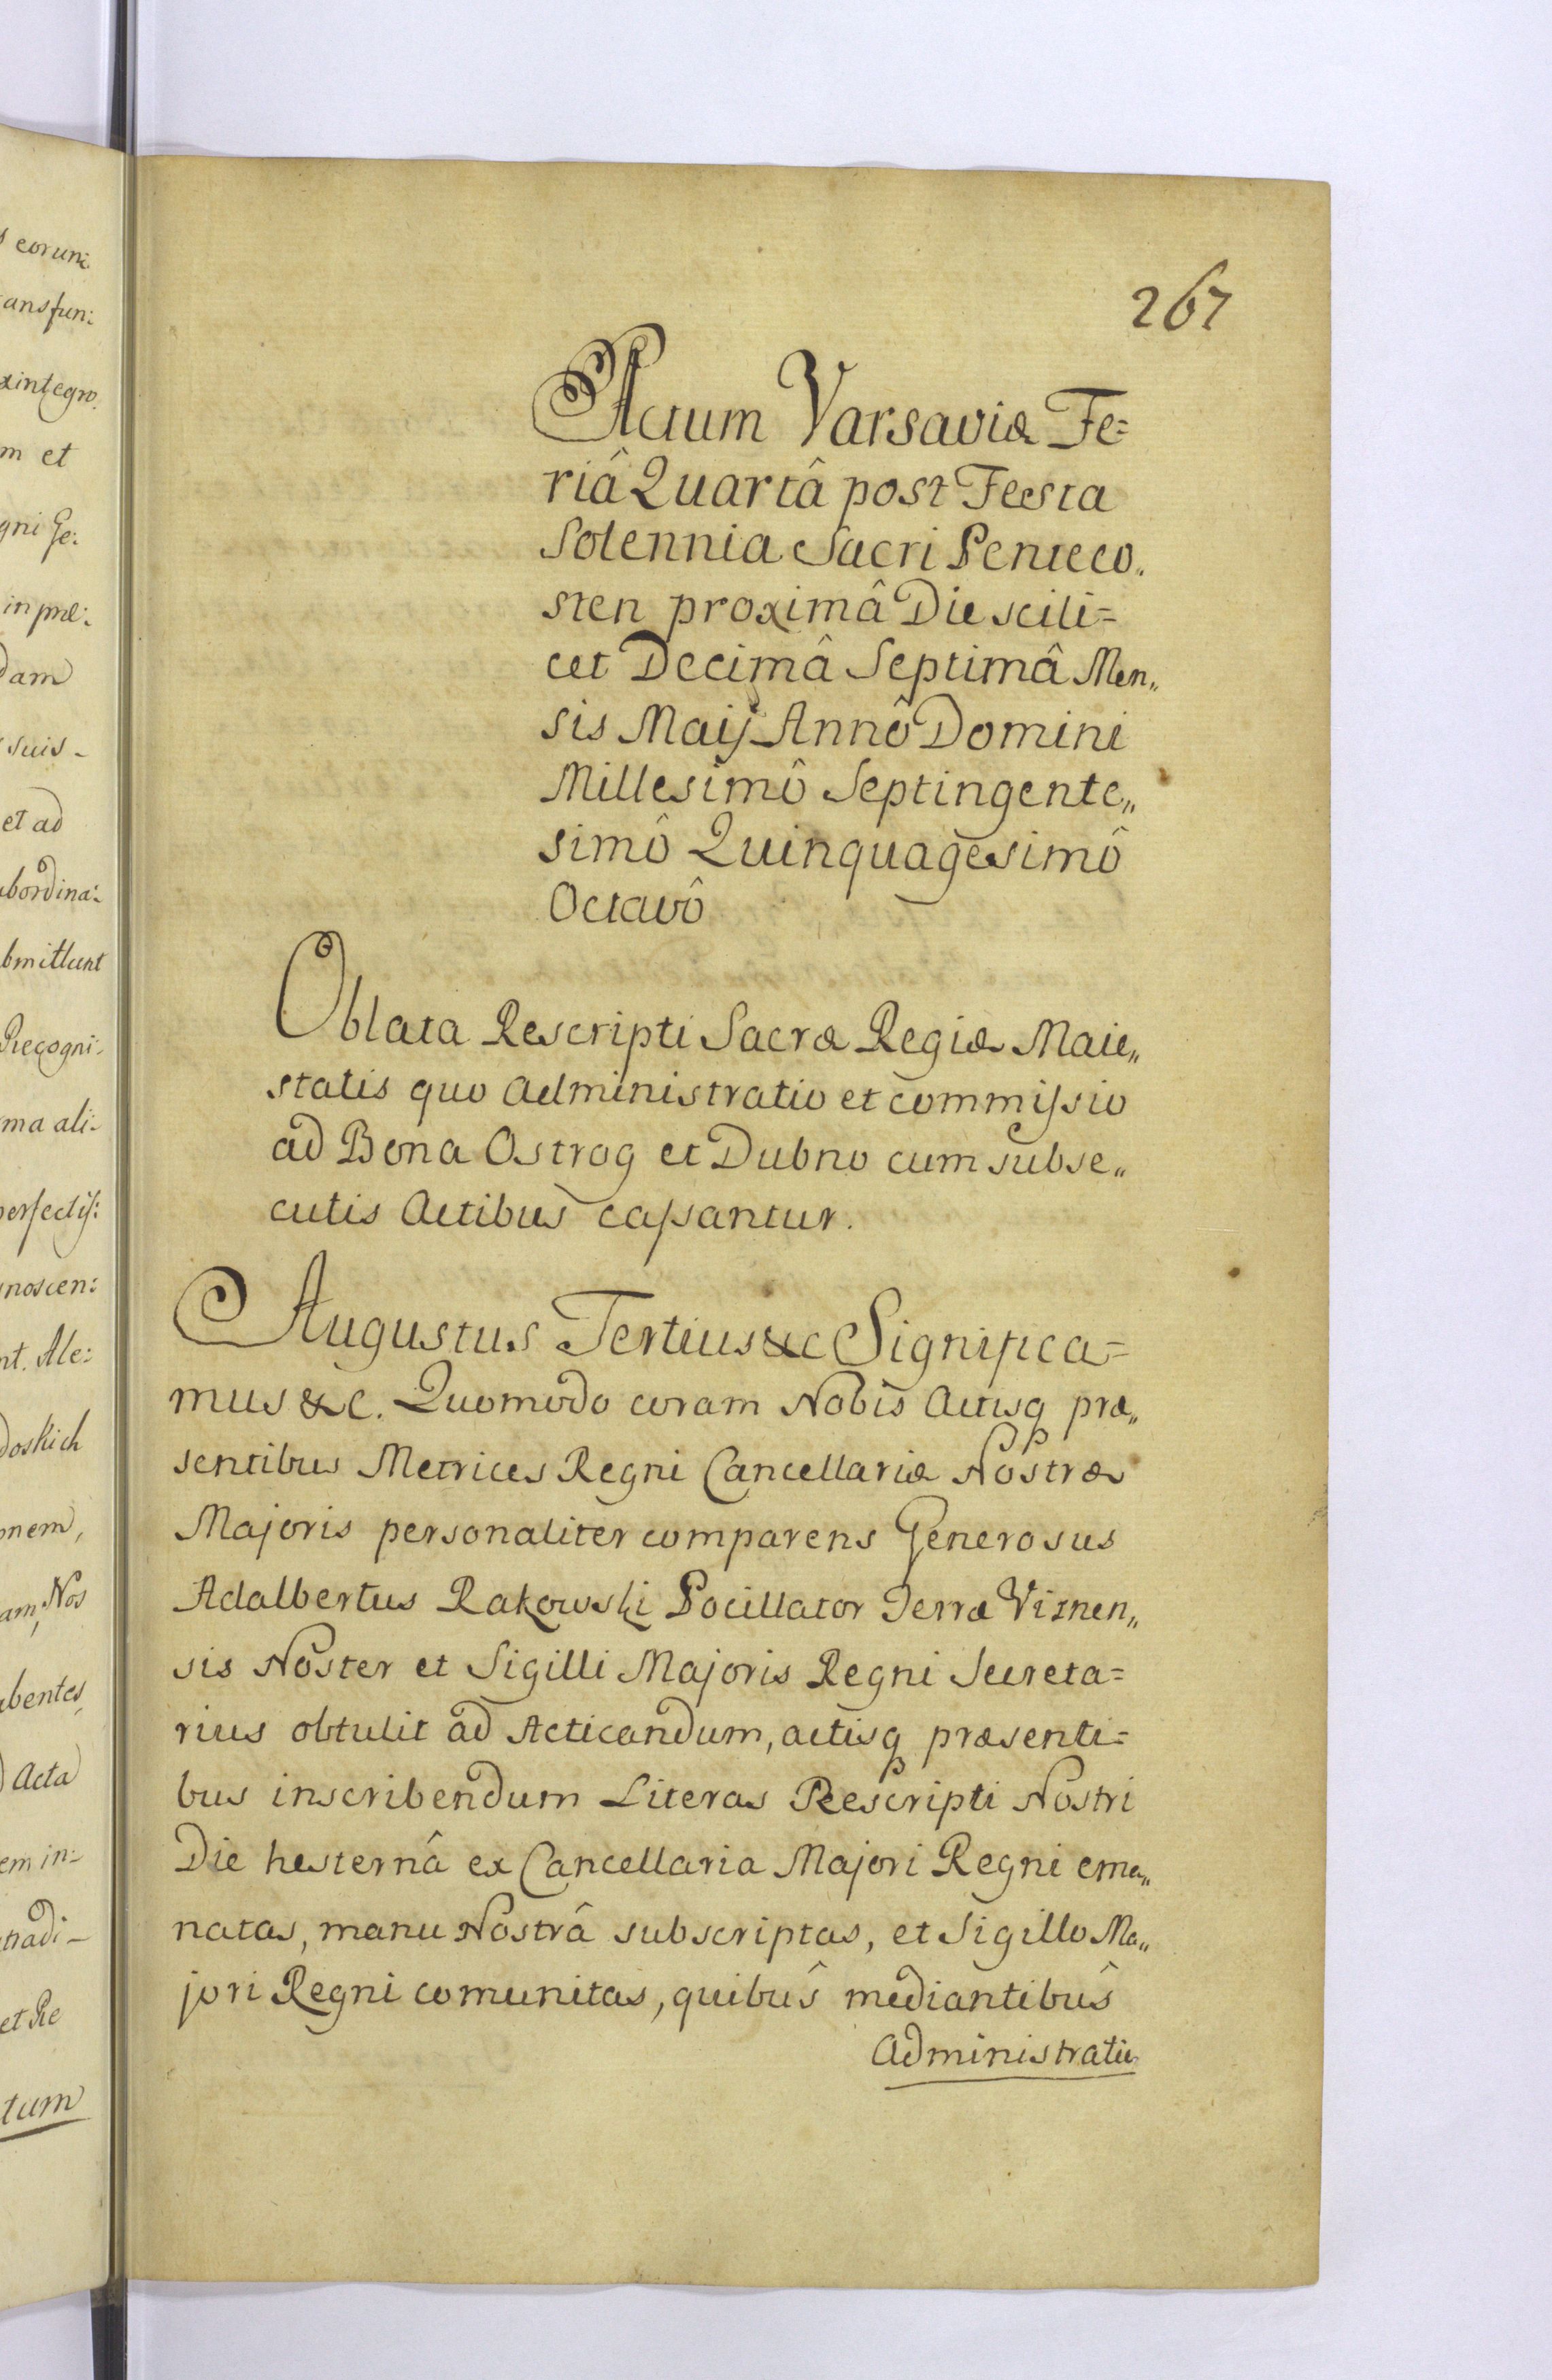 s eorum
ansfun:
xintegro.
m et
gni Ge:
in præ:
dam
suis -
et ad
bordina:
bmittunt
Recogni-
ma ali-
perfectiſ:
noscen:
nt. Ale:
doskich
onem,
am, Nos
bentes,
Acta
em in:
tradi -
et Re
tum
267
Actum Varsaviæ Fe=
riâ Quartâ post Feesta
Solennia Sacri Penteco„
sten proximâ Die scili=
cet Decimâ Septimâ Men„
sis Maij Annô Domini
Millesimô Septingente„
simô Quinquagesimô
Octavô
Oblata Rescripti Sacræ Regiæ Maie„
statis quo Administratio et commiſsio
ad Bona Ostrog et Dubno cum subse„
cutis Actibus caſsantur.
Augustus Tertius &c Significa=
mus &c. Quomodo coram Nobis Actisq præ„
sentibus Metrices Regni Cancellariæ Nostræ
Majoris personaliter comparens Generosus
Adalbertus Rakowski Pocillator Terræ Viznen„
sis Noster et Sigilli Majoris Regni Secreta=
rius obtulit ad Acticandum, actisq præsenti=
bus inscribendum Literas Rescripti Nostri
Die hesternâ ex Cancellaria Majori Regni ema„
natas, manu Nostrâ subscriptas, et Sigillo Ma„
jori Regni comunitas, quibus mediantibus
Administratio